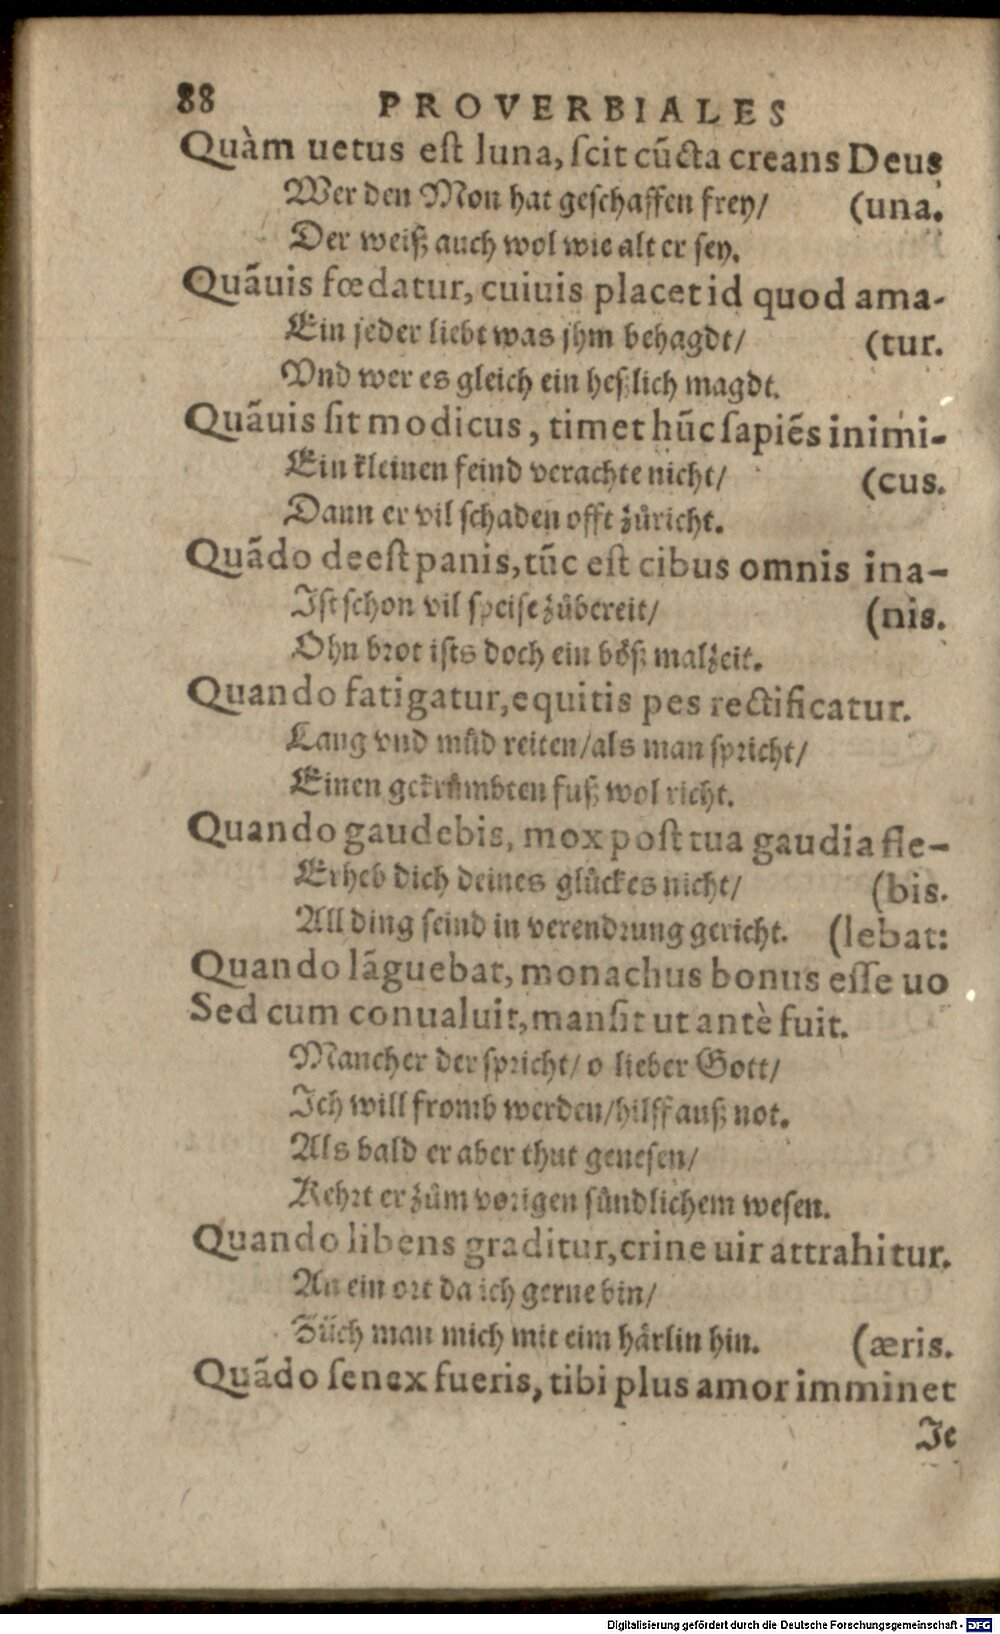 88 PROVERBIALES
Quàm uetus eſt luna, ſcit cūcta creans Deus
Wer den Mon hat geſchaffen frey/ (una.
Der weiß auch wol wie alt er ſey.
Quāuis fœdatur, cuiuis placet id quod ama-
Ein jeder liebt was jhm behagdt/ (tur.
Vnd wer es gleich ein heßlich magdt.
Quāuis ſit modicus, timet hūc ſapiēs inimi-
Ein kleinen feind verachte nicht/ (cus.
Dann er vil ſchaden offt zůricht.
Quādo deeſt panis, tūc eſt cibus omnis ina-
Iſt ſchon vil ſpeiſe zůbereit/ (nis.
Ohn brot iſts doch ein böß malzeit.
Quando fatigatur, equitis pes rectificatur.
Lang vnd můd reiten/als man ſpricht/
Einen gekrůmbten fuß wol richt.
Quando gaudebis, mox poſt tua gaudia fle-
Erheb dich deines glůckes nicht/ (bis.
All ding ſeind in verendrung gericht. (lebat:
Quando lāguebat, monachus bonus eſſe uo
Sed cum conualuit, manſit ut antè fuit.
Mancher der ſpricht/ o lieber Gott/
Ich will fromb werden/hilff auß not.
Als bald er aber thut geneſen/
Kehrt er zům vorigen ſůndlichem weſen.
Quando libens graditur, crine uir attrahitur.
An ein ort da ich gerne bin/
Züch man mich mit eim hårlin hin. (æris.
Quādo ſenex fueris, tibi plus amor imminet
Je
Digitalisierung gefördert durch die Deutsche Forschungsgemeinschaft - DFG